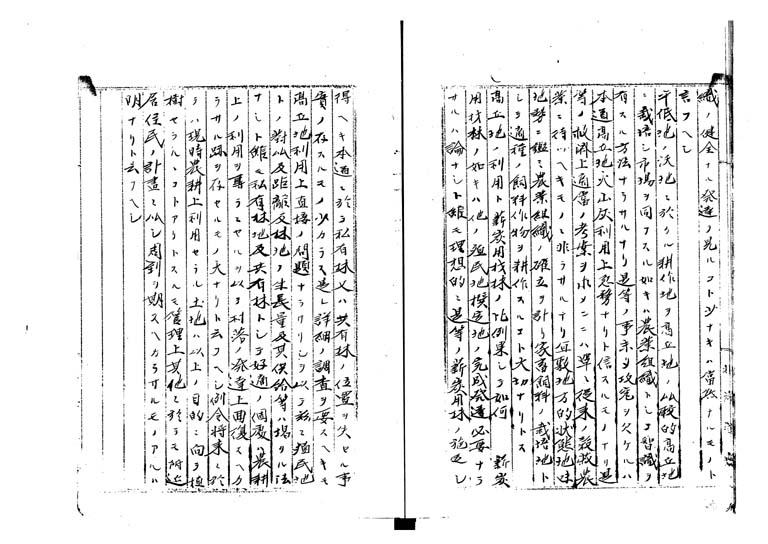 織ノ健全ナル発達ヲ見ルコト少ナキハ當然ナルモノト
言フヘシ
干低地ノ沃地ニ於ケル耕作地ヲ高丘地ノ比較的高丘地
ニ栽培シ市場ヲ同フスル如キハ農業組織トシテ智識ヲ
有スル方法ナラサルナリ是等ノ事未タ攻究ヲ欠ケルハ
本道高丘地火山灰利用上忽諸ナリト信スルモノナリ是
等ノ救済上適當ノ考案ヲ求メンニハ單ニ従来ノ穀菽農
業ニ待ツヘキモノニ非ラサルナリ宜敷地方的状態地味
地勢ニ鑑ミ農業組織ノ確立ヲ計リ家畜飼料ノ栽培地ト
シテ適種ノ飼料作物ヲ耕作スルコト大切ナリトス
高丘地ノ利用ト薪炭用材林ノ比例果シテ如何 薪炭
用材林ノ如キハ他ノ殖民地撰定地ノ完成発達必要ナラ
サルハ論ナシト雖モ理想的ニ是等ノ薪炭用林ノ施定シ
得ヘキ本道ニ於テ私有林又ハ共有林ノ位置ヲ失セル事
實ノ存スルモノ少カラス是レ詳細ノ調査ヲ要スヘキモ
高丘地利用上直接ノ問題ナラサリシヲ以テ茲ニ殖民地
トノ對比及距離反林地ノ生長量及其供給等ハ場ルル法
ナシト雖モ私有林地及共有林トシテ好適ノ個處ハ農耕
上ノ利用ヲ專ラニセルヲ以テ村落ノ発達上回復スヘカ
ラサル跡ヲ存セルモノ大ナリト云フヘシ例令将来ニ於
テハ現時農耕上利用セラル土地ハ以上ノ目的ニ向テ植
樹セラルルコトアリトスルモ管理上其他ニ於テモ附近
居住民ノ計畫ニ比シ周到ヲ期スヘカラサルモノアルハ
明ナリト云フヘシ